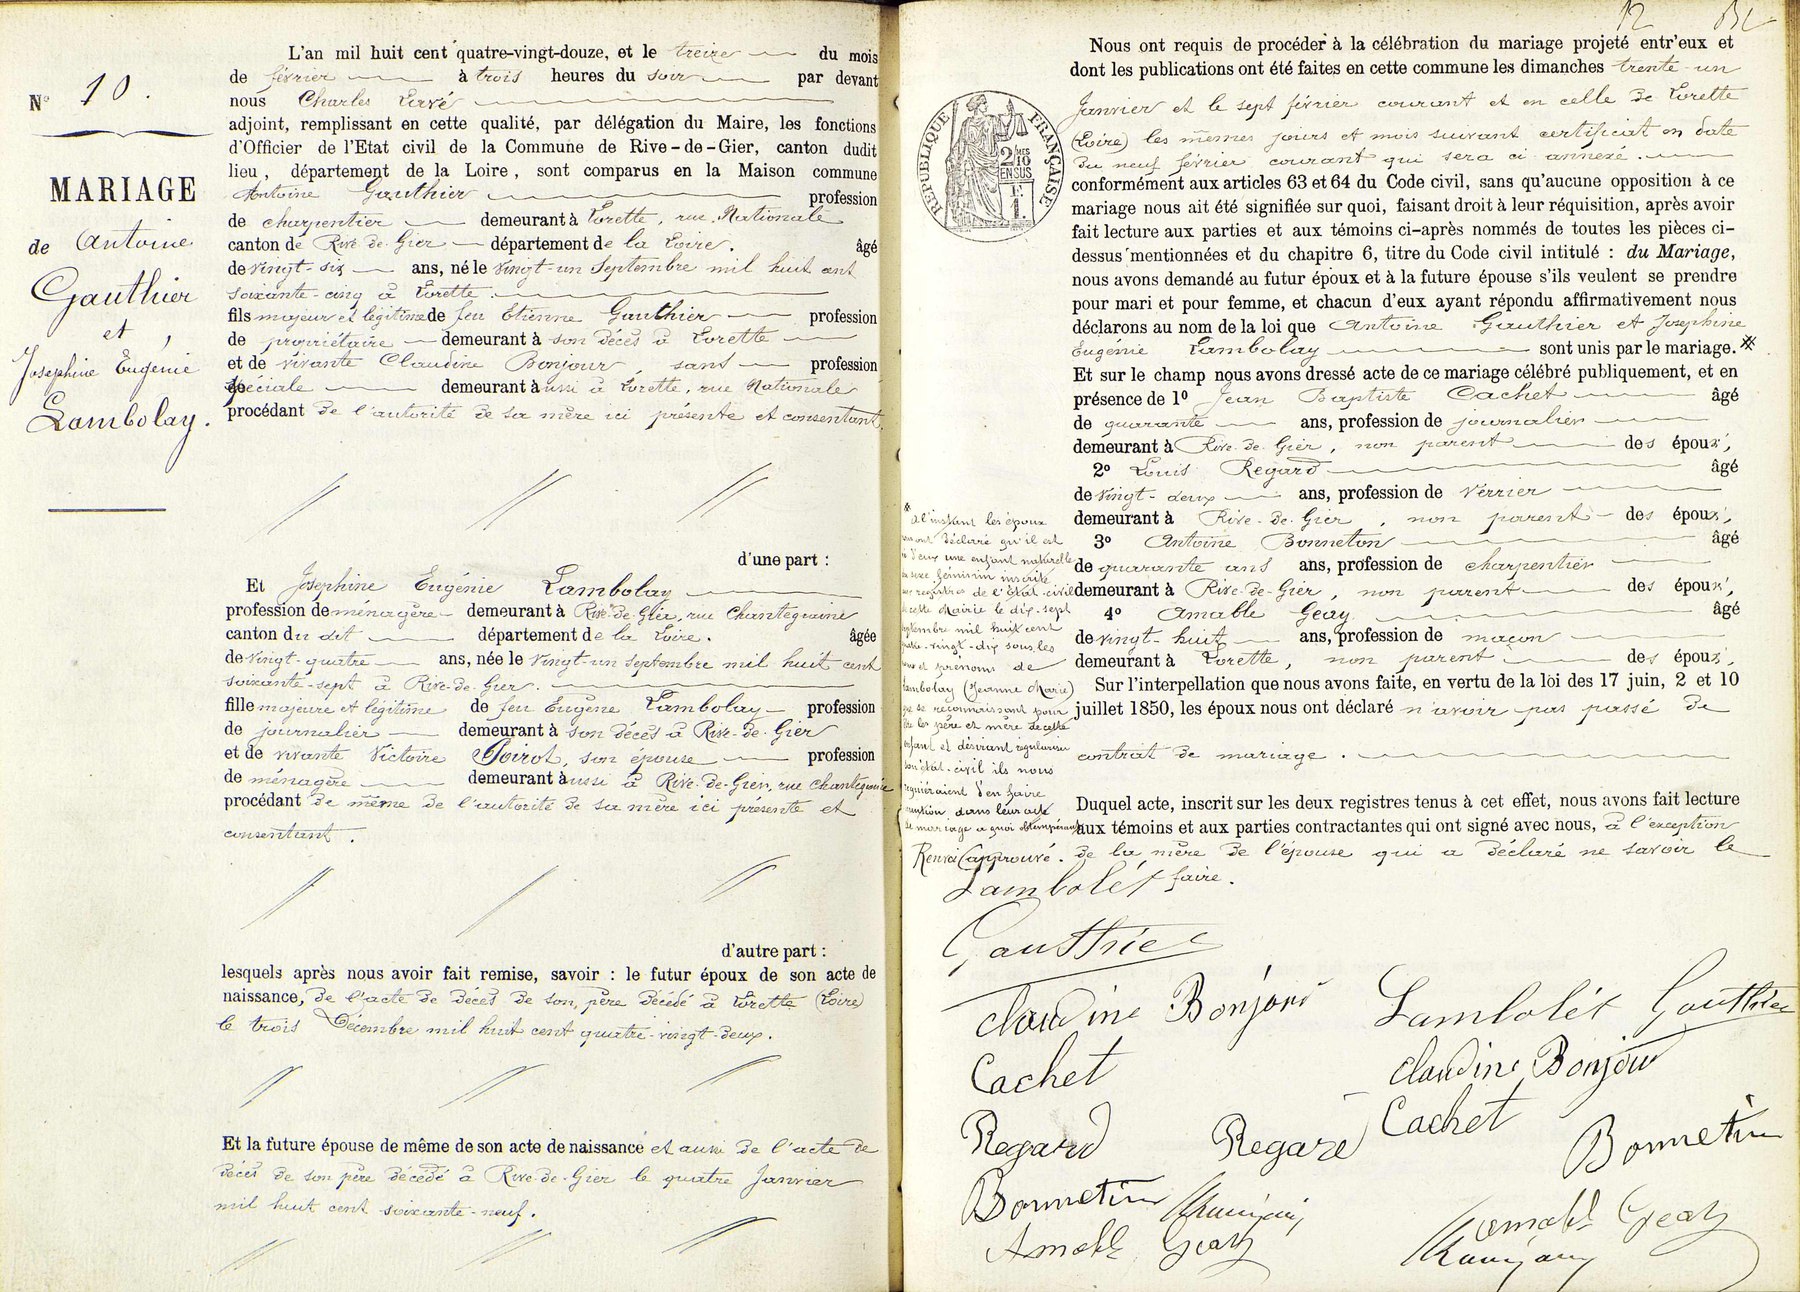 N° 10.
MARIAGE
de Antoine
Gauthier
et
Josephine Eugénie
Lambolay.
L'an mil huit cent quatre-vingt-douze, et le treize du mois
de février à trois heures du soir par devant
nous Charles
adjoint, remplissant en cette qualité, par délégation du Maire, les fonctions
d'Officier de l'Etat civil de la Commune de Rive-de-Gier, canton dudit
lieu, département de la Loire, sont comparus en la Maison commune
Antoine Gauthier profession
de charpentier demeurant à Lorette, rue Nationale
canton de Rive de Gier département de la Loire. âgé
de vingt-six ans, né le vingt-un Septembre mil huit cent
soixante-cinq à Lorette.
fils majeur et légitime de feu Etienne Gauthier profession
de propriétaire demeurant à son décès à Lorette
et de vivante Claudine Bonjour, sans profession
spéciale demeurant aussi à Lorette, rue Nationale
procédant de l'autorité de sa mère ici présente et consentant.
d'une part :
Et Josephine Eugénie Lambolay
profession de ménagère demeurant à Rive-de-Gier, rue Chantegraine
canton du dit département de la Loire. âgée
de vingt-quatre ans, née le vingt-un septembre mil huit cent
soixante-sept à Rive-de-Gier.
fille majeure et légitime de feu Eugène Lambolay profession
de journalier demeurant à son décès à Rive-de-Gier
et de vivante Victoire Poirot, son épouse profession
de ménagère demeurant aussi à Rive-de-Gier, rue Chantegraine
procédant de même de l'autorité de sa mère ici présente et
consentant.
d'autre part :
lesquels après nous avoir fait remise, savoir : le futur époux de son acte de
naissance, de l'acte de décès de son père décédé à Lorette (Loire)
le trois Décembre mil huit cent quatre-vingt-deux.
Et la future épouse de même de son acte de naissance et aussi de l'acte de
décès de son père décédé à Rive-de-Gier le quatre Janvier
mil huit cent soixante-neuf.
12
Nous ont requis de procéder à la célébration du mariage projeté entr'eux et
dont les publications ont été faites en cette commune les dimanches trente-un
Janvier et le sept février courant et en celle de Lorette
(Loire) les mêmes jours et mois suivant certificat en date
du neuf février courant qui sera ci annexé.
RÉPUBLIQUE FRANÇAISE
2/10 MES
EN SUS
1 F.
conformément aux articles 63 et 64 du Code civil, sans qu'aucune opposition à ce
mariage nous ait été signifiée sur quoi, faisant droit à leur réquisition, après avoir
fait lecture aux parties et aux témoins ci-après nommés de toutes les pièces ci-
dessus mentionnées et du chapitre 6, titre du Code civil intitulé : du Mariage,
nous avons demandé au futur époux et à la future épouse s'ils veulent se prendre
pour mari et pour femme, et chacun d'eux ayant répondu affirmativement nous
déclarons au nom de la loi que Antoine Gauthier et Josephine
Eugénie Lambolay sont unis par le mariage. *
Et sur le champ nous avons dressé acte de ce mariage célébré publiquement, et en
présence de 1° Jean Baptiste Cachet âgé
de quarante ans, profession de journalier
demeurant à Rive-de-Gier, non parent des époux,
2° Louis Regard âgé
de vingt-deux ans, profession de verrier
demeurant à Rive-de-Gier, non parent des époux,
3° Antoine Bonneton âgé
de quarante ans ans, profession de charpentier
demeurant à Rive-de-Gier, non parent des époux,
4° Amable Geay âgé
de vingt-huit ans, profession de maçon
demeurant à Lorette, non parent des époux,
Sur l'interpellation que nous avons faite, en vertu de la loi des 17 juin, 2 et 10
juillet 1850, les époux nous ont déclaré n'avoir pas passé de
contrat de mariage.
Duquel acte, inscrit sur les deux registres tenus à cet effet, nous avons fait lecture
aux témoins et aux parties contractantes qui ont signé avec nous, à l'exception
de la mère de l'épouse qui a déclaré ne savoir le
faire.
* A l'instant les époux
ont déclaré qu'il est
né d'eux une enfant naturelle
du sexe féminin inscrite
aux registres de l'état-civil
de cette Mairie le dix-sept
septembre mil huit cent
quatre-vingt-dix sous les
nom et prénoms de
Lambolay (Jeanne Marie)
se reconnaissant pour
être les père et mère de cette
enfant et désirant régulariser
son état-civil ils nous
requéraient d'en faire
mention dans leur acte
de mariage à quoi obtempérant
Renvoi approuvé.
Lambolét
Gauthier
Claudine Bonjour
Lambolét Gauthier
Cachet
Claudine Bonjour
Regard Regard Cachet
Bonneton
Bonneton
Amable Geay
Amable Geay